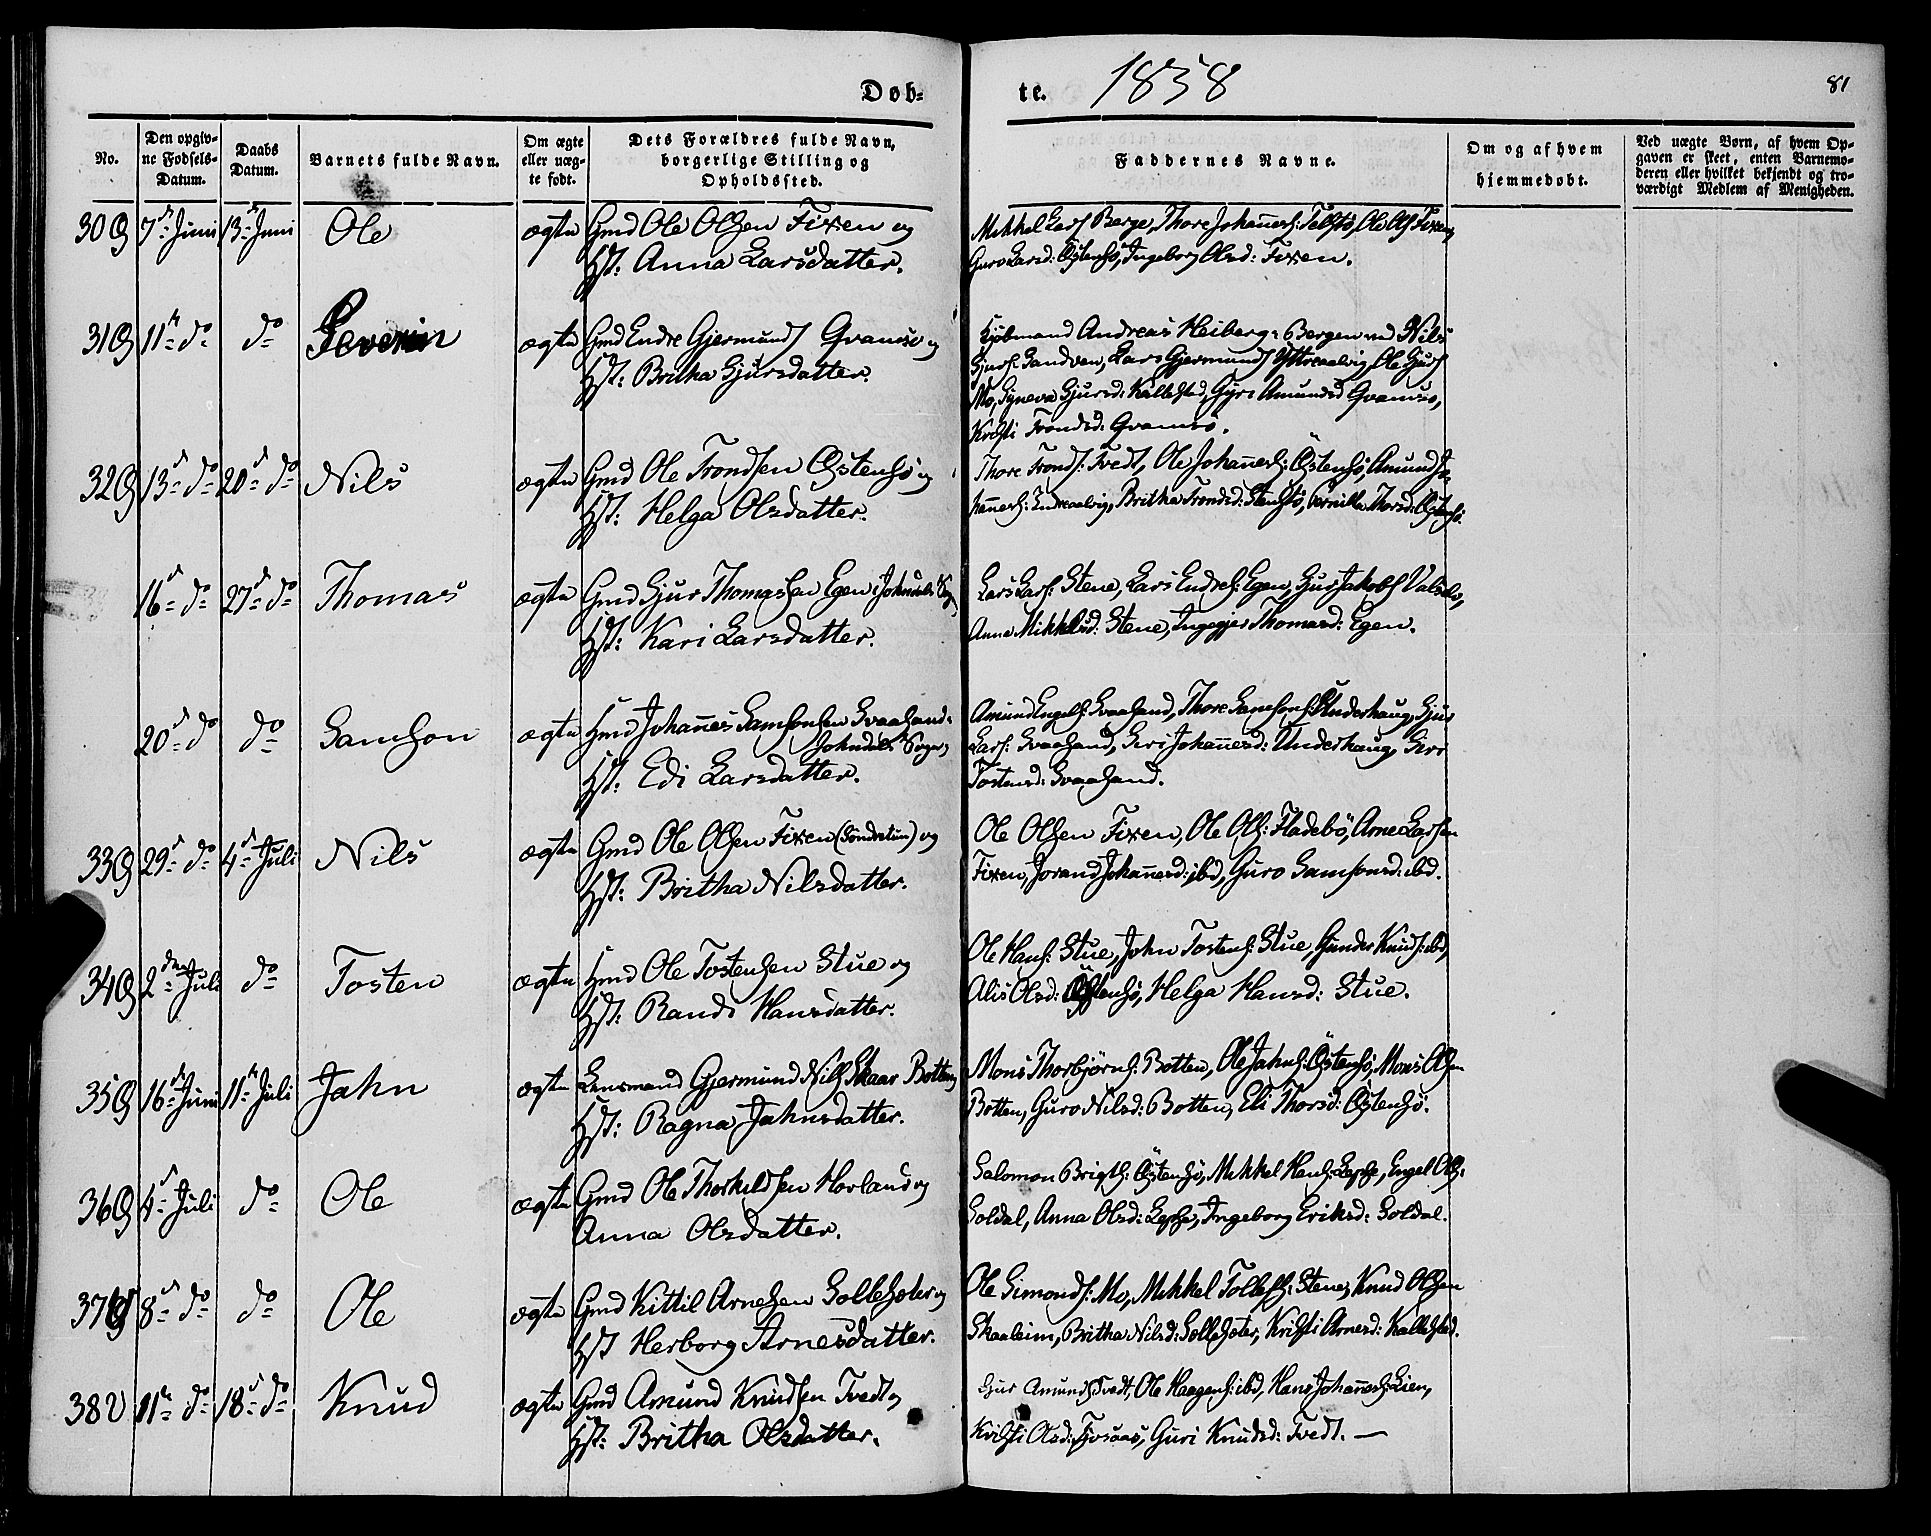 Døb- te. 1858 81
No. Den opgivne Fødsels-Datum. Daabs Datum. Barnets fulde Navn. Om ægte eller uægte født. Dets Forældres fulde Navn, borgerlige Stilling og Opholdssted. Faddernes Navne. Om og af hvem hjemmedøbt. Ved uægte Børn, af hvem Opgaven er skeet, enten Barnemoderen eller hvilket bekjendt og troværdigt Medlem af Menigheden.
30 7de Juni 13de Juni Ole ægte Gmd Ole Olsen Fixen og
Hst: Anna Larsdatter.
Mikkel Lars Berge, Thore Johannes: Telstø, Ole Ols Fixen,
Guro Larsd: Østensø, Ingeborg Olsd: Fixen.
31 11te do do Severin ægte Gmd Endre Gjermunds Qvamsø og
Hst: Britha Sjursdatter.
Kjøbmand Andreas Heiberg: Bergen ved Nils
Sjurs: Sandven, Lars Gjermunds Yttreaalvig, Ole Sjurs
Mo, Syneva Sjursd: Kallestad, Gyri Amundsd Qvamsø,
Kristi Trondsd: Qvamsø.
32 13de do 20de do Nils ægte Gmd Ole Trondsen Østensø og
Hst: Helga Olsdatter.
Thore Tronds: Tvedt, Ole Johannes: Østensø, Amund Jo-
hannes: Indreaalvig, Britha Trondsd: Stensø, Pernilla Thorsd: Østensø
16de do 27de do Thomas ægte Gmd Sjur Thomassen Egen i Johndals Sogn
Hst: Kari Larsdatter.
Lars Lars: Stene, Lars Endres: Egen, Sjur Jakobs
Anna Mikkelsd: Stene, Ingegjer Thomasd: Egen.
20de do do Samson ægte Hmd Johannes Samsonsen Svaasand
Johndals Sogn,
Hst: Edi Larsdatter.
Amund Engels: Svaasand, Thore Samsons: Underhaug, Sjur
Lars: Svaasand, Siri Johannesd: Underhaug, Siri
Tostensd: Svaasand.
33 29de do 4de Juli Nils ægte Gmd Ole Olsen Fixen (Søndretun) og
Hst: Britha Nilsdatter.
Ole Olsen Fixen, Ole Ols: Fladebø, Arne Larsen
Fixen, Jorand Johannesd: ibd, Guro Samsonsd: ibd.
34 2den Juli do Tosten ægte Hmd Ole Tostensen Stue og
Hst: Randi Hansdatter.
Ole Hans: Stue, John Tostens: Stue, Gunder Knuds: ibd,
Alis Olsd: Østensø, Helga Hansd: Stue.
35 16de Juni 11te Juli Jahn ægte Lensmand Gjermund Nils Skaar Botten,
Hst: Ragna Jahnsdatter.
Mons Thorbjørns: Botten, Ole Jahns: Østensø, Mons Olsen
Botten, Guro Nilsd: Botten, Eli Thorsd: Østensø.
36 4de Juli do Ole ægte Gmd Ole Thorkildsen Horland og
Anna Olsdatter.
Salomon Brigts: Østensø, Mikkel Hans: Lepse, Engel Ols:
Soldal, Anna Olsd: Lepse, Ingeborg Eriksd: Soldal.
37 8de do do Ole ægte Gmd Kittil Arnesen Sollesæter og
Hst Herborg Arnesdatter.
Ole Simonds: Mo, Mikkel Tollefs: Stene, Knud Olsen
Skaaleim, Britha Nilsd: Sollesæter, Kristi Arnesd: Kallestad.
38 11te do 18de do Knud ægte Gmd Amund Knudsen Tvedt og
Hst: Britha Olsdatter.
Sjur Amunds Tvedt, Ole Haagens: ibd, Hans Johannes: Lien,
Kristi Olsd: Fosaas, Guri Knudsd: Tvedt. —